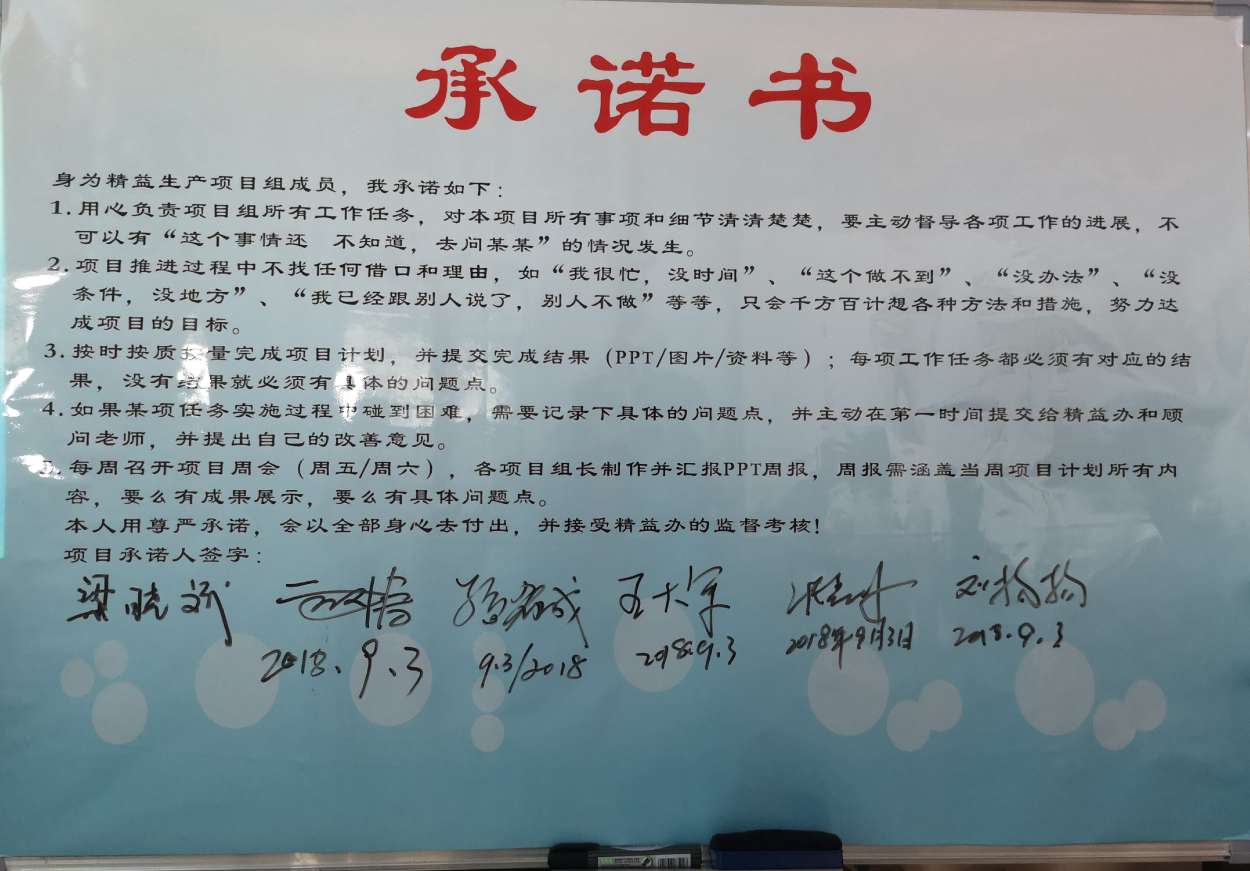 承诺书
身为精益生产项目组成员，我承诺如下：
1.用心负责项目组所有工作任务，对本项目所有事项和细节清清楚楚，要主动督导各项工作的进展，不
可以有“这个事情还 不知道，去问某某”的情况发生。
2.项目推进过程中不找任何借口和理由，如“我很忙，没时间”、“这个做不到”、“没办法”、“没
条件，没地方”、“我已经跟别人说了，别人不做”等等，只会千方百计想各种方法和措施，努力达
成项目的目标。
3.按时按质按量完成项目计划，并提交完成结果（PPT/图片/资料等）；每项工作任务都必须有对应的结
果，没有结果就必须有具体的问题点。
4.如果某项任务实施过程中碰到困难，需要记录下具体的问题点，并主动在第一时间提交给精益办和顾
问老师，并提出自己的改善意见。
5.每周召开项目周会（周五/周六），各项目组长制作并汇报PPT周报，周报需涵盖当周项目计划所有内
容，要么有成果展示，要么有具体问题点。
本人用尊严承诺，会以全部身心去付出，并接受精益办的监督考核！
项目承诺人签字：
梁晓斌 王大军 刘扬扬
2018.9.3 9.3/2018 2018.9.3 2018年9月3日 2018.9.3